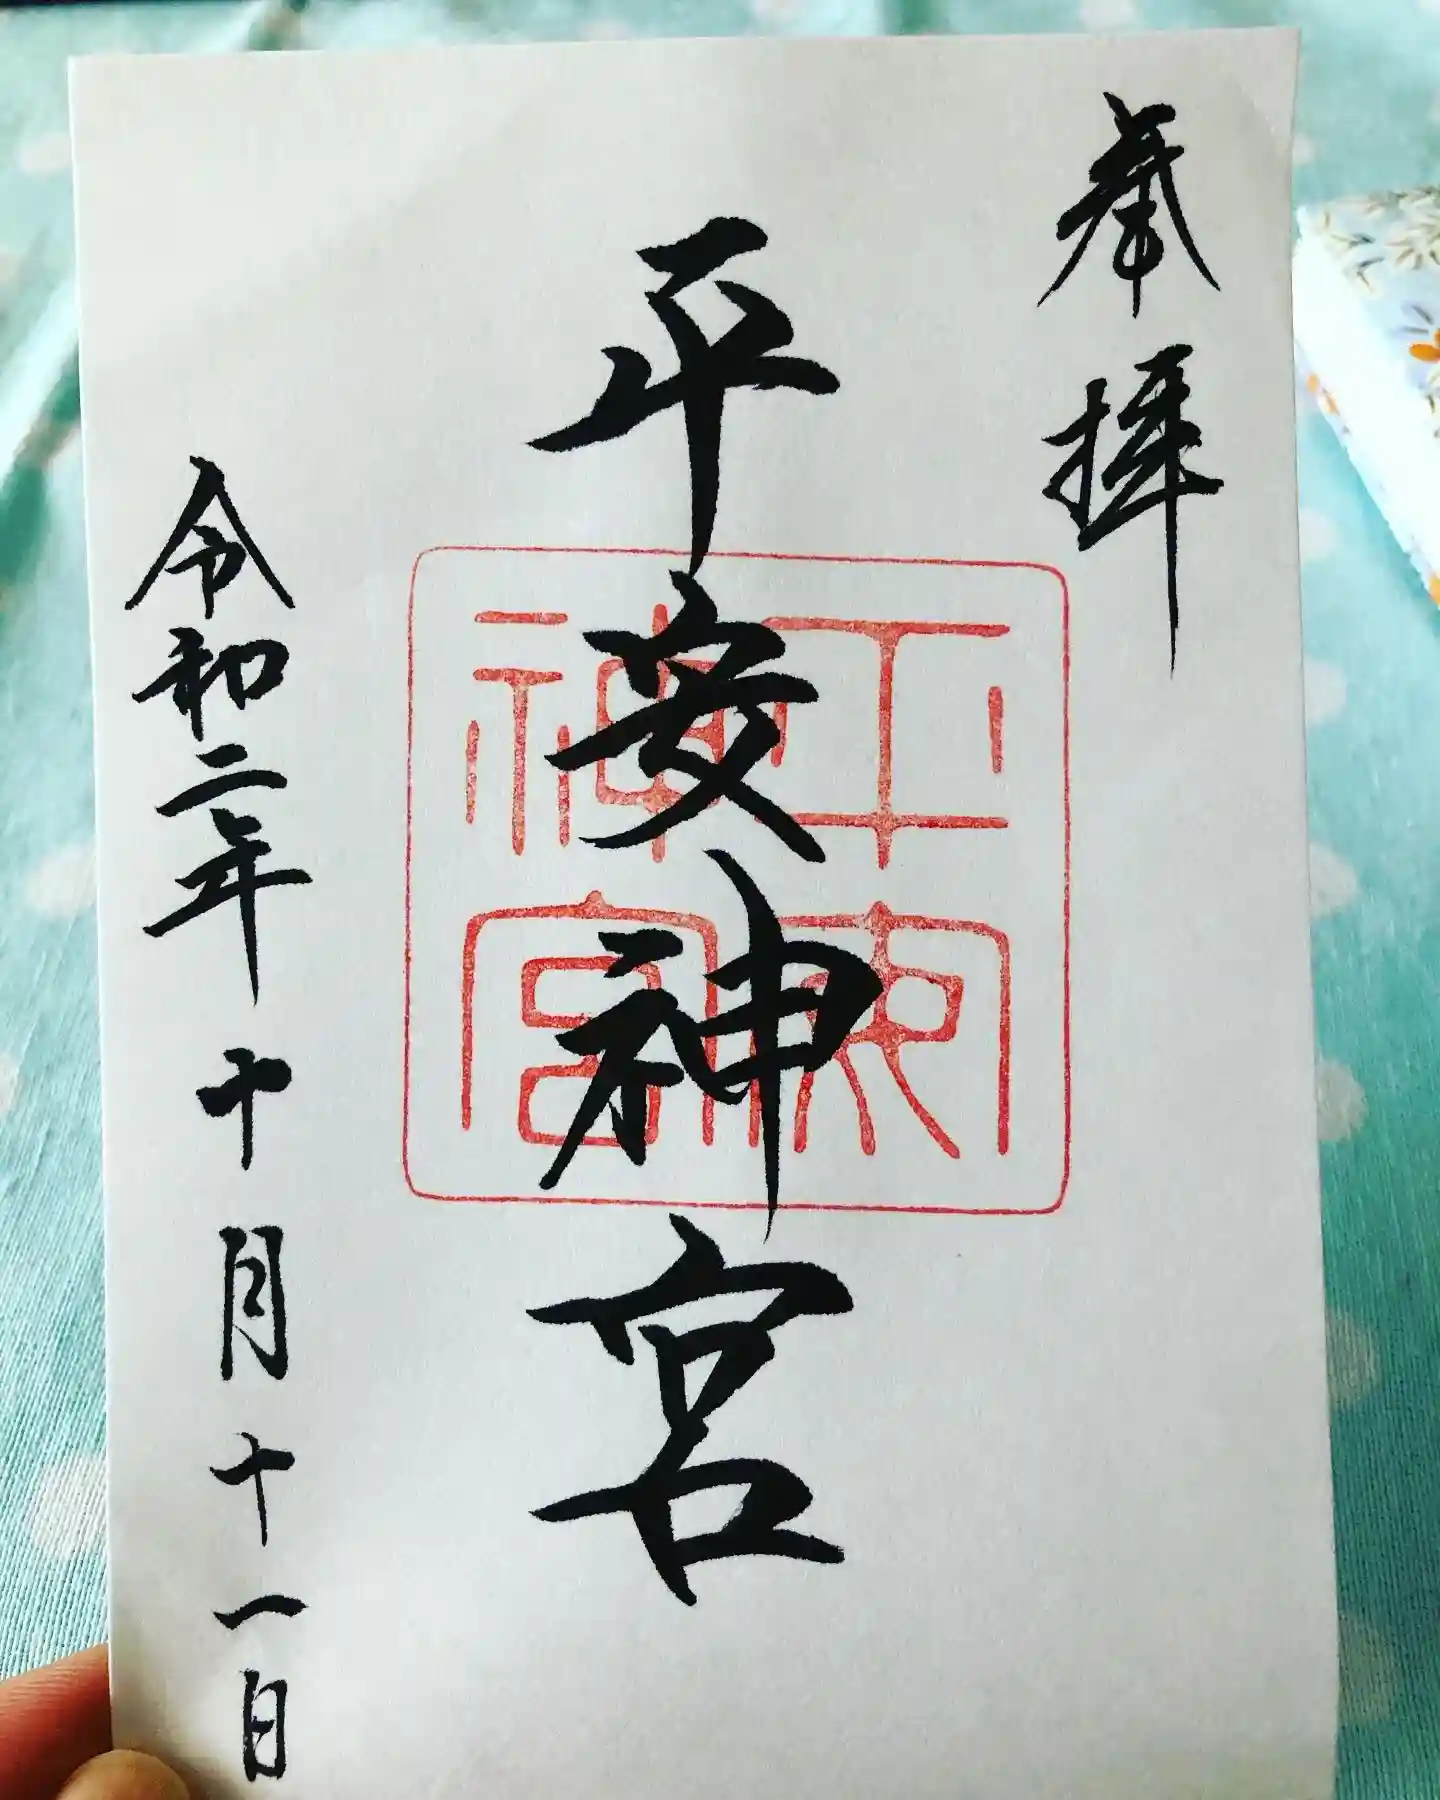 奉拝
平安神宮
平安神宮
令和二年十月十一日